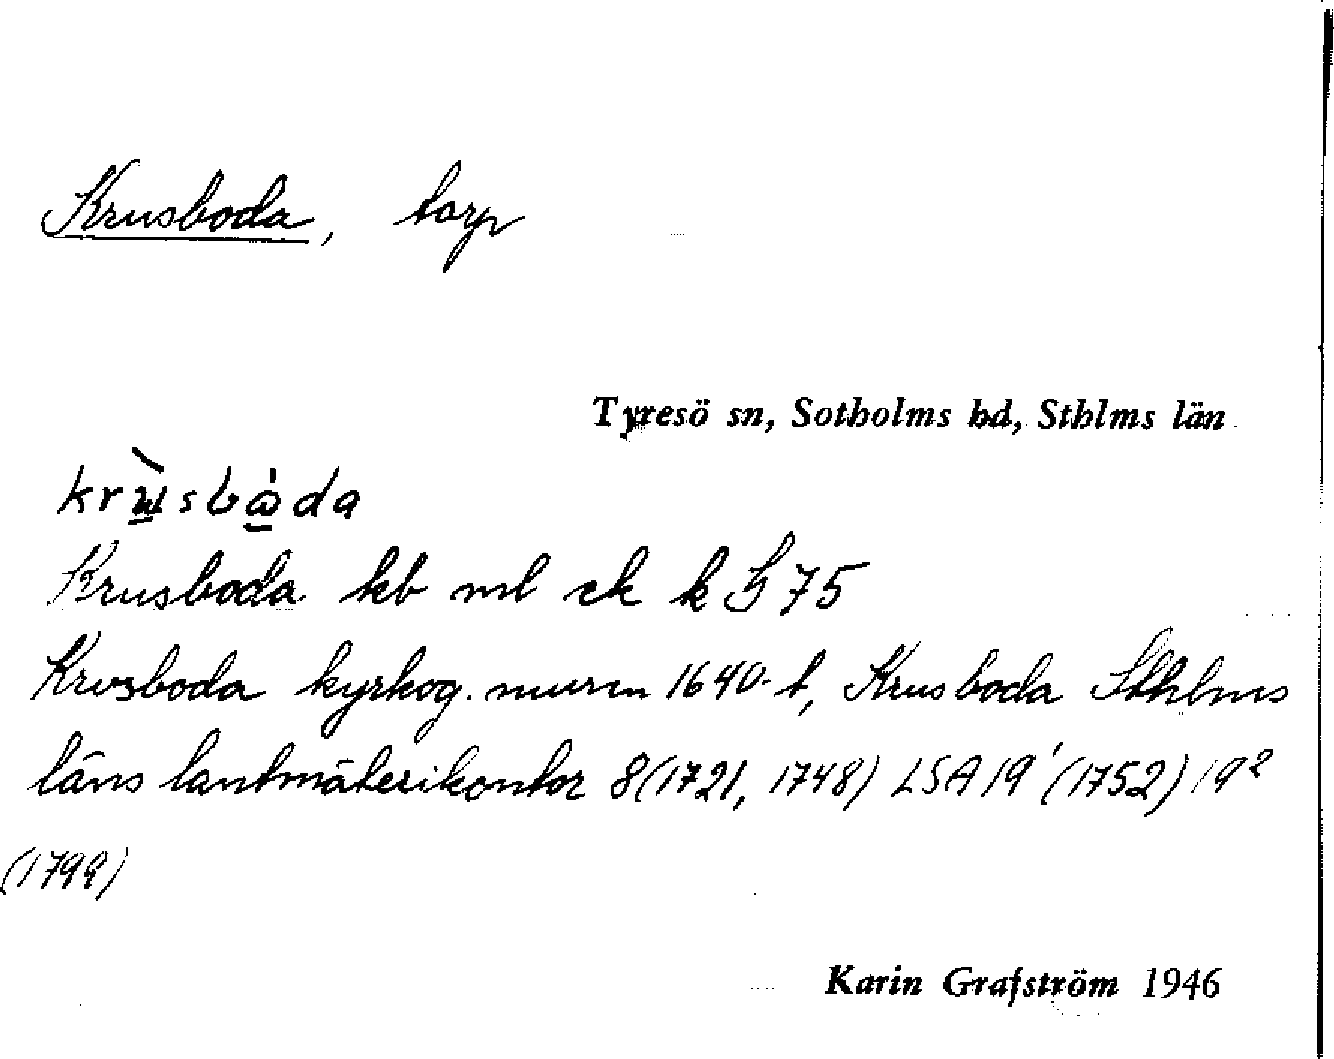 Krusboda, torp
Tyresö sn, Sotholms hd, Sthlms län
krùsbòda
Krusboda kb ml ek k H 75
Krvsboda kyrkog. muren 1640-t, Krusboda Sthlms
läns lantmäterikontor 8(1721, 1748) LSA 19¹(1752) 19²
(1799)
Karin Grafström 1946